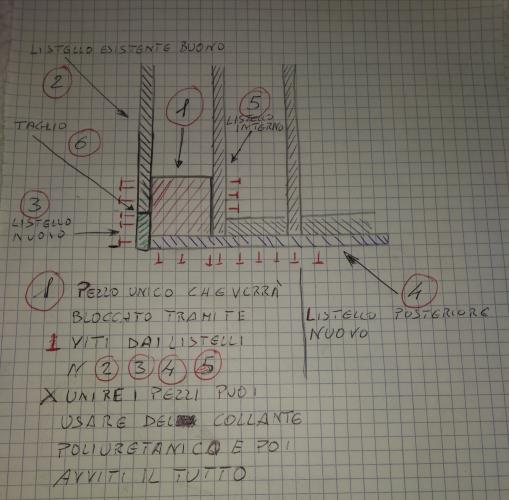 LISTELLO ESISTENTE BUONO
2
1
5
LISTELLO
INTERNO
TAGLIO
6
3
LISTELLO
NUOVO
4
LISTELLO POSTERIORE
NUOVO
1 PEZZO UNICO CHE VERRÀ
BLOCCATO TRAMITE
VITI DAI LISTELLI
N 2 3 4 5
X UNIRE I PEZZI PUOI
USARE DEL COLLANTE
POLIURETANICO E POI
AVVITI IL TUTTO